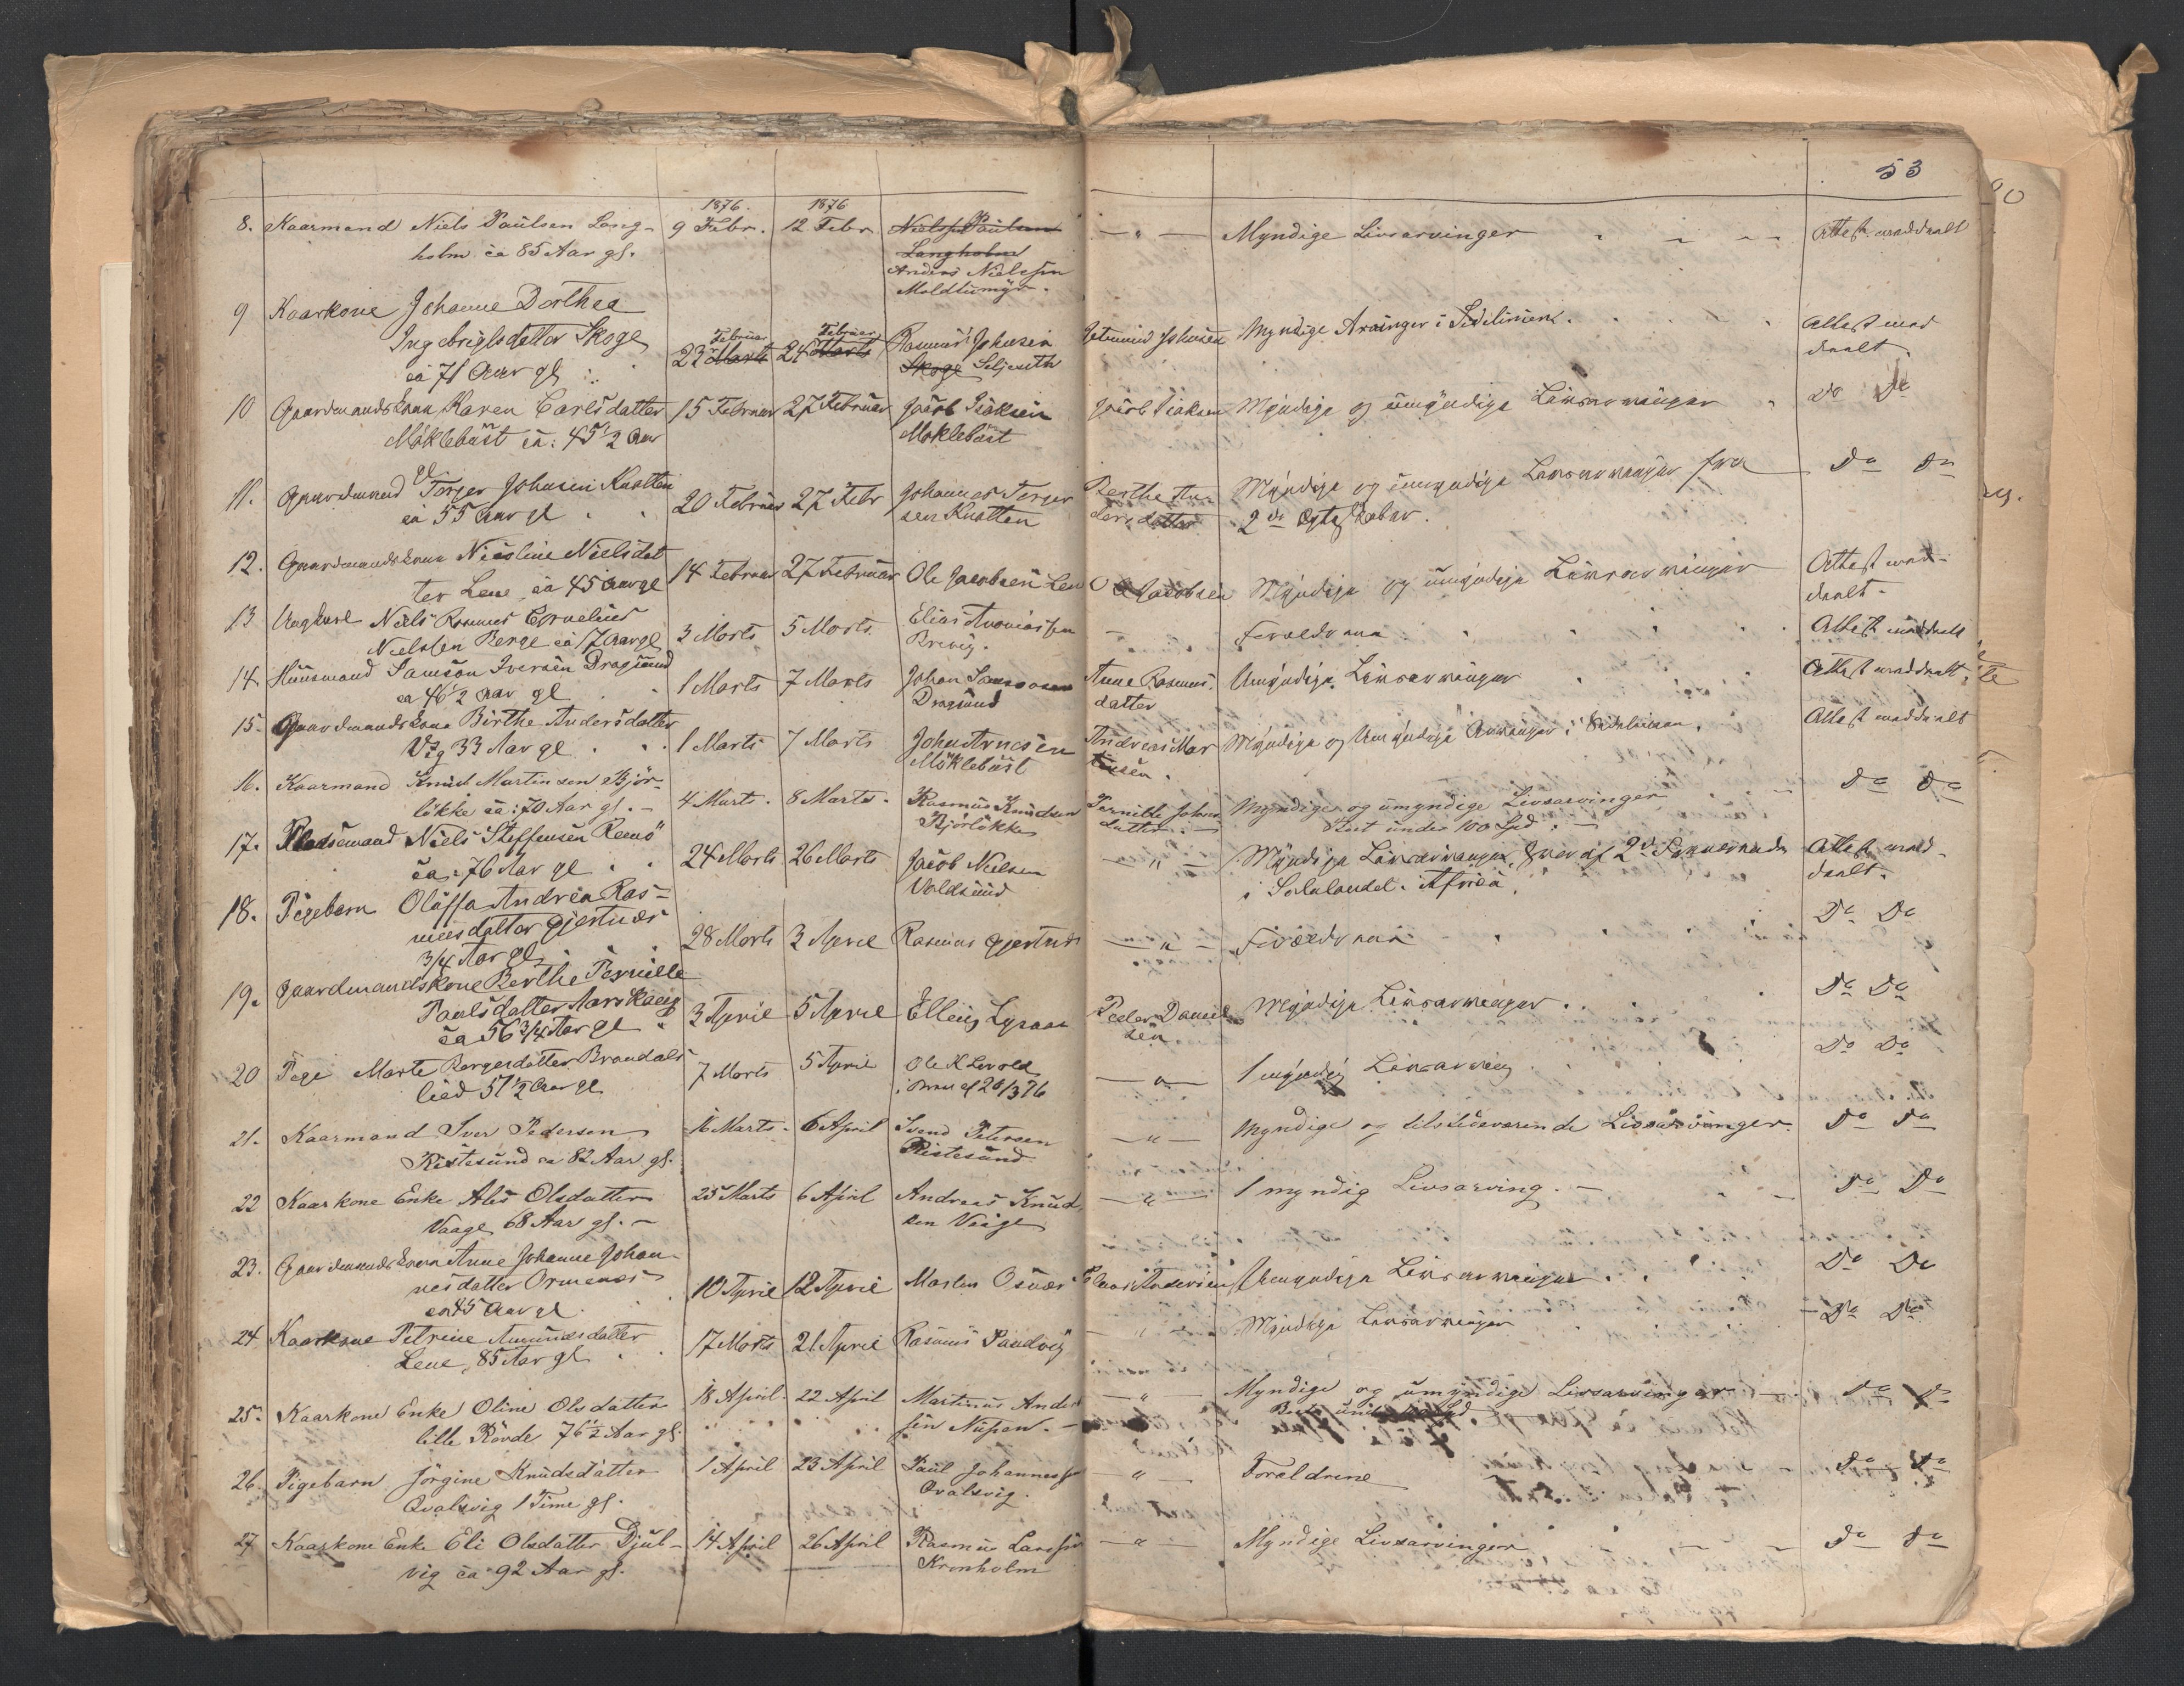 53
1876. 1876
8. Kaarmand Niels Paulsen Lang- 9 Febr. 12 Febr. Niels Paulsen — " — Myndige Livsarvinger Attest meddeelt
holm ca 85 Aar gl. Langholm
Anders Nielsen
9 Kaarkone Johanne Dorthea
Ingebrigtsdatter Skoge 23 Februar Marts 24 Februar Marts Rasmus Johnsen Johnsen Myndige Arvinger i Sidelinien. Attest med
ca 71 Aar gl Skoge Seljeseth deelt.
10 Gaardmandskone Karen Carlsdatter 15 Februar 27 Februar Jacob Isaksen Jacob Isaksen Myndige og umyndige Livsarvinger Do Do
Möklebüst ca: 45 1/2 Aar gl Moklebüst
11. Gaardmand Torger Johnsen Knotten 20 Februar 27 Febr Johannes Torger Berthe An- Myndige og umyndige Livsarvinger fra Do Do
ca 55 Aar gl sen Knotten dersdatter 2de Egteskaber.
12. Gaardmandskone Nicoline Nielsdat 14 Februar 27 Februar Ole Jacobsen Lene O Jacobsen Myndige og umyndige Livsarvinger Attest med-
ter Lene, ca 45 Aar gl deelt.
13 Ungkarl Niels Rasmus Cornelius 3 Marts 5 Marts Elias Ananiassen — Forældrene Attest meddeelt
Nielsen Berge ca 17 Aar gl Brevig.
14. Huusmand Samson Iversen Dragsund 1 Marts 7 Marts Johan Samsonsen Anne Rasmus- Umyndige Livsarvinger Attest meddeelt.
ca 46 1/2 Aar gl Dragsund datter
15. Gaardmandskone Birthe Andersdatter 1 Marts 7 Marts John Arnesen Andreas Mar Myndige og Umyndige Arvinger i Sidelinien. Attest meddeelt
Vig 33 Aar gl Möklebüst tinsen.
16. Kaarmand Knud Martinsen Bjør- 4 Marts. 8 Marts. Rasmus Knudsen Pernille Johns Myndige og umyndige Livsarvinger Do Do
løkke ca: 70 Aar gl. Bjørløkke datter. — Bout under 100 Spd. —
17. Pladsemand Niels Steffensen Remö 24 Marts 26 Marts Jacob Nielsen — " — Myndige Livsarvinger, hvoraf 2de i Attest med-
ca. 76 Aar gl Voldsund i Afrika. deelt.
18. Pigebarn Oluffa Andrea Ras-
musdatter Gjertnes 28 Marts 3 April Rasmus Gjertnes — " — Forældrene Do Do
3/4 Aar gl
19. Gaardmandskone Berthe Pernille
Paulsdatter Aarskaug 3 April 5 April Elling Peder Daniel Myndige Livsarvinger. Do Do
ca 56 3/4 Aar gl sen
20 Pige Marte Bergersdatter Brandals 7 Marts 5 April Ole K Levold — " — 1 myndig Livsarving Do Do
lied 51 1/2 Aar gl i Brev af 20/3 76
21. Kaarmand Iver Pedersen 16 Marts. 6 April Svend Petersen — " — Myndige og tilstedeværende Livsarvinger. Do Do
Ristesund ca 82 Aar gl. Ristesund
22 Kaarkone Enke Alis Olsdatter 25 Marts 6 April Andreas Knud- — " — 1 myndig Livsarving. — Do Do
Vaage 68 Aar gl. — sen Vaage
23. Gaardmandskone Anne Johanne Johan-
nesdatter Ormenæs 10 April 12 April Martin Osnæs Andersen Umyndige Livsarvinger Do Do
ca 45 Aar gl.
24 Kaarkone Petrine Amundsdatter 17 Marts 21 April Rasmus Sandvig — " — Myndige Livsarvinger Do Do
Lene, 85 Aar gl.
25. Kaarkone Enke Oline Olsdatter 18 April. 22 April Martinus Ander — " — Myndige og umyndige Livsarvinger Do Do
lille Røvde 76 1/2 Aar gl. sen Nupen. — Bout under
26. Pigebarn Jörgine Knudsdatter 1 April 23 April Paul Johannessen — " — Forældrene Do Do
Qvalsvig 1 Time gl. Qvalsvig.
27 Kaarkone Enke Eli Olsdatter Djub- 14 April 26 April Rasmus Larssen — " — Myndige Livsarvinger Do Do
vig ca 92 Aar gl. Kronholm